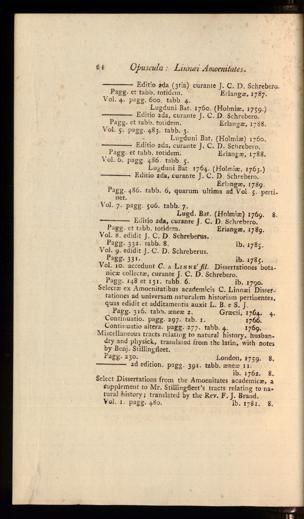 64 Opuscula: Linnæi Amoenitates.
——— Editio 2da (3tia) curante J. C. D. Schrebero.
Pagg. et tabb. totidem. Erlangæ, 1787.
Vol. 4. pagg. 600. tabb. 4.
Lugduni Bat. 1760. (Holmiæ, 1759.)
——— Editio 2da, curante J. C. D. Schrebero.
Pagg. et tabb. totidem. Erlangæ, 1788.
Vol. 5. pagg. 483. tabb. 3.
Lugduni Bat. (Holmiæ) 1760.
——— Editio 2da, curante J. C. D. Schrebero.
Pagg. et tabb. totidem. Erlangæ, 1788.
Vol. 6. pagg. 486. tabb. 5.
Lugduni Bat. 1764. (Holmiæ, 1763.)
——— Editio 2da, curante J. C. D. Schrebero.
Erlangæ, 1789.
Pagg. 486. tabb. 6, quarum ultima ad Vol. 5. perti-
net.
Vol. 7. pagg. 506. tabb. 7.
Lugd. Bat. (Holmiæ) 1769. 8.
——— Editio 2da, curante J. C. D. Schrebero.
Pagg. et tabb. totidem. Erlangæ, 1789.
Vol. 8. edidit J. C. D. Schreberus.
Pagg. 332. tabb. 8. ib. 1785.
Vol. 9. edidit J. C. D. Schreberus.
Pagg. 331. ib. 1785.
Vol. 10. accedunt C. a LINNE' fil. Dissertationes bota-
nicæ collectæ, curante J. C. D. Schrebero.
Pagg. 148 et 131. tabb. 6. ib. 1790.
Selectæ ex Amoenitatibus academicis C. Linnæi Disser-
tationes ad universam naturalem historiam pertinentes,
quas edidit et additamentis auxit L. B. e S. J.
Pagg. 316. tabb. æneæ 2. Græcii, 1764. 4.
Continuatio. pagg. 297. tab. 1. 1766.
Continuatio altera. pagg. 277. tabb. 4. 1769.
Miscellaneous tracts relating to natural history, husban-
dry and physick, translated from the latin, with notes
by Benj. Stillingfleet.
Pagg. 230. London, 1759. 8.
——— 2d edition. pagg. 391. tabb. æneæ 11.
ib. 1762. 8.
Select Dissertations from the Amoenitates academicæ, a
supplement to Mr. Stillingfleet's tracts relating to na-
tural history; translated by the Rev. F. J. Brand.
Vol. 1. pagg. 480. ib. 1781. 8.